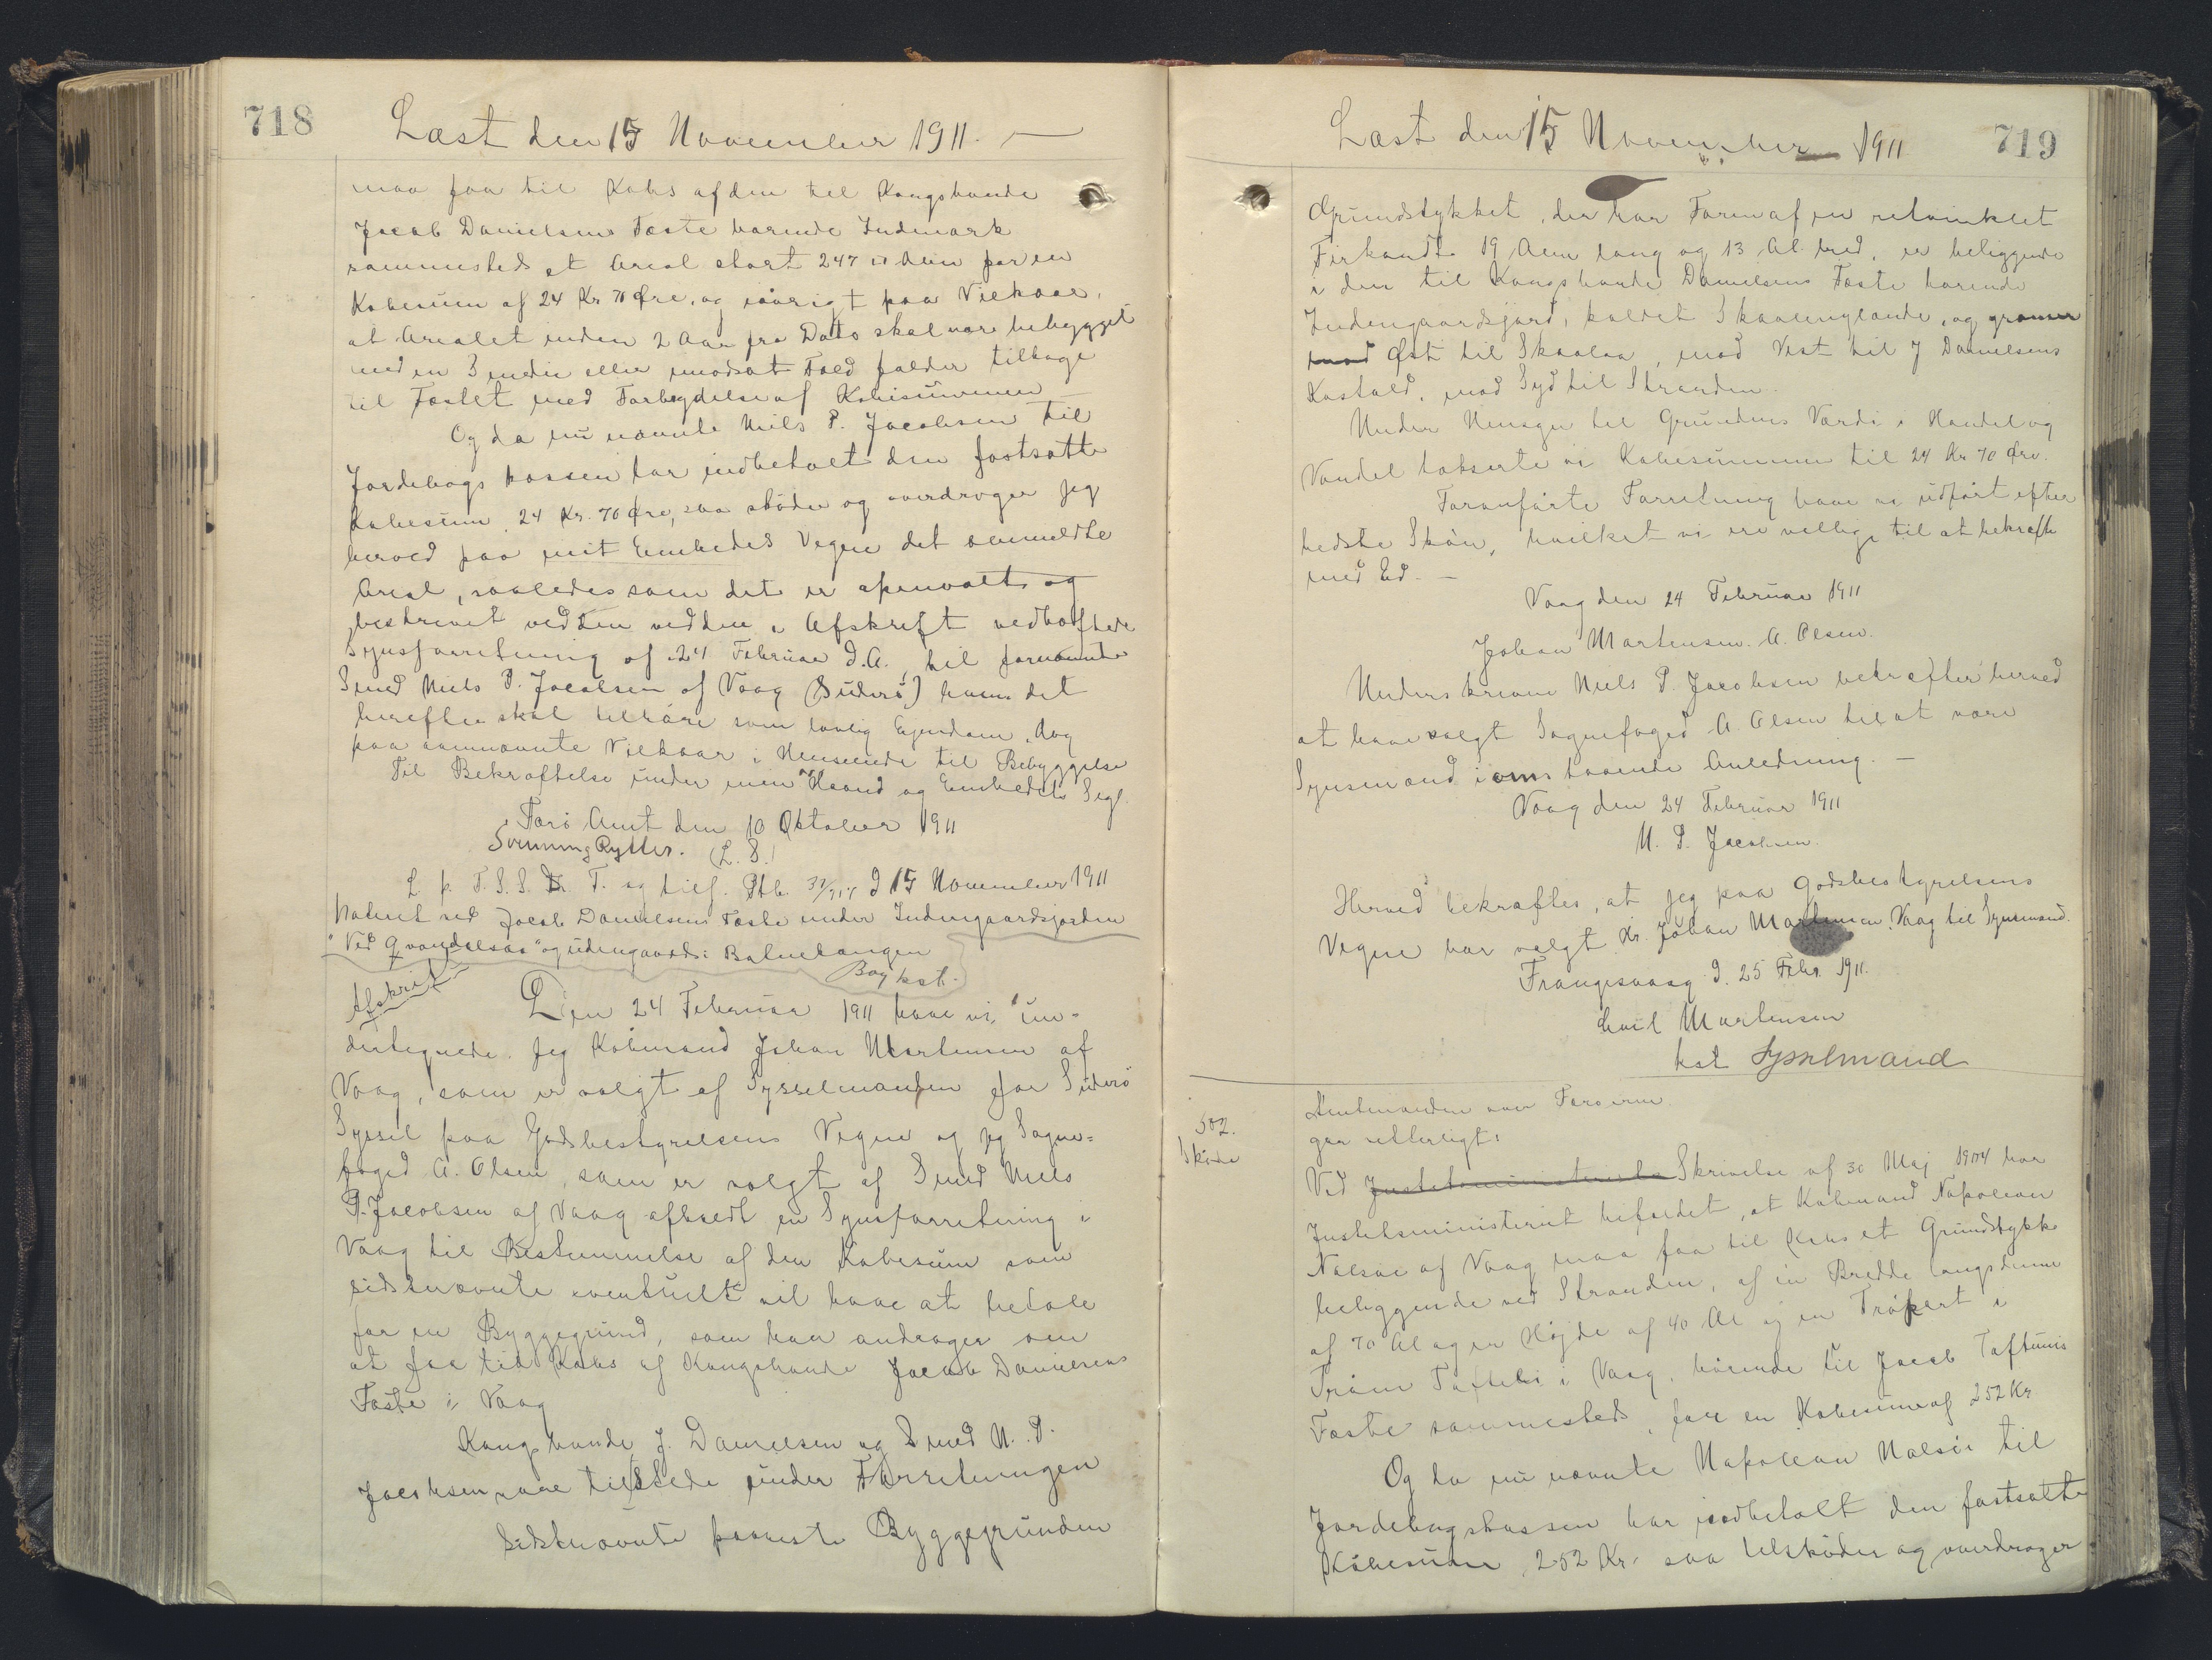 718
Læst den 15 November 1911. —
maa faa til Købs af den til Kongsbonde
Jacob Danielsens Fæste hørende Indmark
sammesteds et Areal stort 247 □ Alen for en
Købesum af 24 Kr 70 Øre, og iøvrigt paa Vilkaar,
at Arealet inden 2 Aar fra Dato skal være bebygget
med en Smedie eller imodsat Fald falder tilbage
til Fæstet med Forbrydelse af Købesummen
Og da nu nævnte Niels P. Jacobsen til
Jordebogskassen har indbetalt den fastsatte
Købesum 24 Kr. 70 Øre, saa skøder og overdrager jeg
herved paa mit Embedes Vegne det ommeldte
Areal, saaledes som det er opmaalt og
beskrevet ved den i Afskrift vedhæftede
Synsforretning af 24 Februar d.A. til fornævnte
Smed Niels P. Jacobsen af Vaag (Suderø) ham det
herefter skal tilhøre som lovlig Ejendom, dog
paa ovennævnte Vilkaar i Henseende til Bebyggelse
Til Bekræftelse under min Haand og Embedets Segl.
Færø Amt den 10 Oktober 1911
Svenning Rytter. (L. S.)
L. p. F. S. S. Dr. T. og tilf. Ptb. d 15 November 1911
Noteret ved Jacob Danielsens Fæste under Indengaardsjorden
"Ved Qvandalsaa" og udengaards i
Bagkst.
Afskrift
Den 24 Februar 1911 have vi un-
dertegnede. Jeg Købmand Johan Mortensen af
Vaag, som er valgt af Sysselmanden for Suderø
Syssel paa Godsbestyrelsens Vegne og jeg Sogne-
foged A. Olsen, som er valgt af Smed Niels
P. Jacobsen af Vaag afholdt en Synsforretning i
Vaag til Bestemmelse af den Købesum som
sidstnævnte eventuelt vil have at betale
for en Byggegrund, som han andrager om
at faa til Købs af Kongsbonde Jacob Danielsens
Fæste i Vaag
Kongsbonde J. Danielsen og Smed N. P.
Jacobsen vare tilstede under Forretningen
Sidstnævnte paaviste Byggegrunden
Læst den 15 November 1911
719
Grundstykket, der har Form af en retvinklet
Firkandt 19 Alen lang og 13 Al. bred, er beliggende
i den til Kongsbonde Danielsens Fæste hørende
Indengaardsjord, kaldet, og grænser
mod Øst til Skaalaa, mod Vest til J Danielsens
Kostald, mod Syd til Stranden.
Under Hensyn til Grundens Værdi i Handel og
Vandel takserte vi Købesummen til 24 Kr 70 Øre.
Foranførte Forretning have vi udført efter
bedste Skøn, hvilket vi ere villige til at bekræfte
med Ed. —
Vaag den 24 Februar 1911
Johan Mortensen. A. Olsen.
Underskrevne Niels P. Jacobsen bekræfter herved
at have valgt Sognefoged A. Olsen til at være
Synsmand i omstaaende Anledning. —
Vaag den 24 Februar 1911
N. P. Jacobsen.
Herved bekræftes, at jeg paa Godsbestyrelsens
Vegne har valgt Hr. Johan Mortensen, Vaag til Synsmand.
Frangisvaag d. 25 Febr. 1911.
Emil Mortensen
kst Sysselmand
502.
Skøde
Amtmanden over Færøerne
gør vitterligt:
Ved Justitsministeriets Skrivelse af 30 Maj 1904 har
Justitsministeriet bifaldet, at Købmand Napoleon
Nolsøe af Vaag maa faa til Købs et Grundstykke
beliggende ved Stranden, af en Bredde langs denne
af 70 Al og en Højde af 40 Al og en i
i Vaag, hørende til Jacob Toftums
Fæste sammesteds, for en Købesum af 252 Kr
Og da nu nævnte Napoleon Nolsøe til
Jordebogskassen har indbetalt den fastsatte
Købesum, 252 Kr. saa tilskøder og overdrager